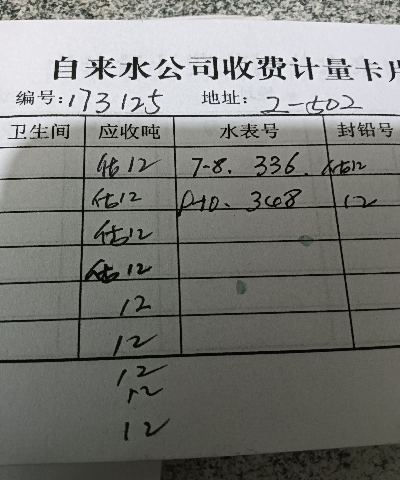 自来水公司收费计量卡片
编号:173125 地址: 2-502
卫生间 应收吨 水表号 封铅号
估12 7-8. 336. 估12
估12 348 12
估12
估12
12
12
12
12
12